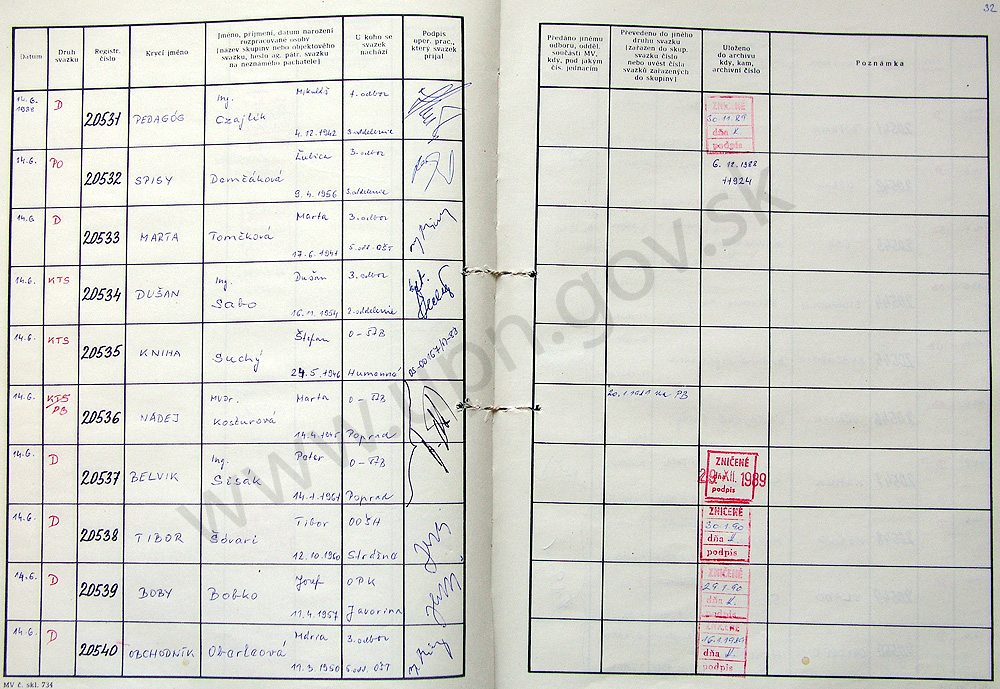 32
Datum
Druh
svazku
Registr.
číslo
Krycí jméno
Jméno, příjmení, datum narození
rozpracované osoby
[název skupiny nebo objektového
svazku, heslo ag. pátr. svazku
na neznámého pachatele]
U koho se
svazek
nachází
Podpis
oper. prac.,
který svazek
přijal
Předáno jinému
odboru, odděl.
součásti MV,
kdy, pod jakým
čís. jednacím
Převedeno do jiného
druhu svazku
[zařazen do skup.
svazku číslo
nebo uvést čísla
svazků zařazených
do skupiny]
Uloženo
do archivu
kdy, kam,
archivní číslo
Poznámka
14.6.
1988 D 20531 PEDAGÓG Ing. Mikuláš
Czajlik
4.12.1942
1. odbor
3. oddelenie
ZNIČENÉ
30.11.89
dňa
podpis
14.6. PO 20532 SPISY Ľubica
Demčáková
9.4.1956
3. odbor
3. oddelenie
6.12.1988
11924
14.6 D 20533 MARTA Marta
Tomčková
17.6.1941
3. odbor
5. odd. OŠT
14.6. KTS 20534 DUŠAN Ing. Dušan
Sabo
16.11.1954
3. odbor
2. oddelenie
14.6. KTS 20535 KNIHA Štefan
Suchý
24.5.1946
O-ŠTB
Humenné
14.6. KTS
PB 20536 NÁDEJ MUDr. Marta
Kosturová
14.4.1945
O-ŠTB
Poprad
na PB
14.6. D 20537 BELVIK Ing. Peter
Sisák
14.1.1961
O-ŠTB
Poprad
ZNIČENÉ
29. XII. 1989
podpis
14.6. D 20538 TIBOR Tibor
Šóvari
12.10.1960
OOŠH
ZNIČENÉ
30.1.90
dňa
podpis
14.6. D 20539 BOBY Jozef
Bobko
11.4.1957
OPK
Javorina
ZNIČENÉ
29.1.90
dňa
podpis
14.6. D 20540 OBCHODNÍK Mária
19.3.1950
3. odbor
5. odd. OŠT
ZNIČENÉ
16.1.1989
dňa
podpis
MV č. skl. 734
www.upn.gov.sk